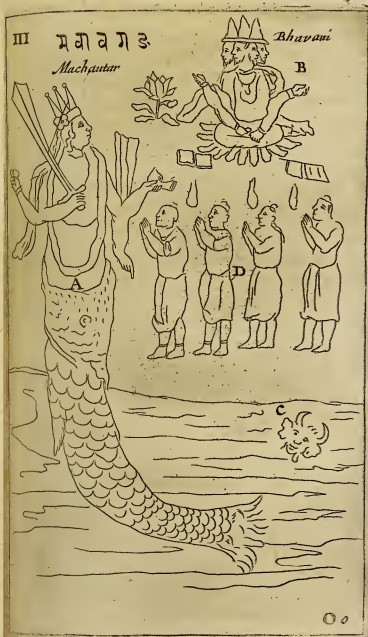 III
Machautar
Bhavani
B
A
D
C
O o